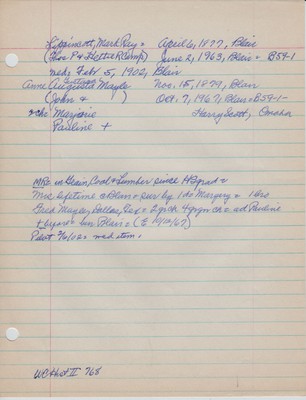 Lippincott, Mark Ray = April 6, 1877, Blair
(Thos P & Hettie R Camp) June 2, 1963, Blair = B59-1
md: Feb 5, 1902, Blair
Anne Augusta Mayle Nov. 15, 1879, Blair
(John & ) Oct. 7, 1967, Blair = B59-1-
2 ch: Marjorie Harry Scott, Omaha
Pauline +
MRL in Grain, Coal & Lumber since HS grad =
Mrs. lifetime Blair = sur by 1 da Margery = 1 bro
Fred Mayle, Dallas, Tex = 2 grch 4 grgrch = ad Pauline
+ byears = bur Blair = (E 10/10/67)
Pilot 2/6/02 = md item.
WC Hist II 768